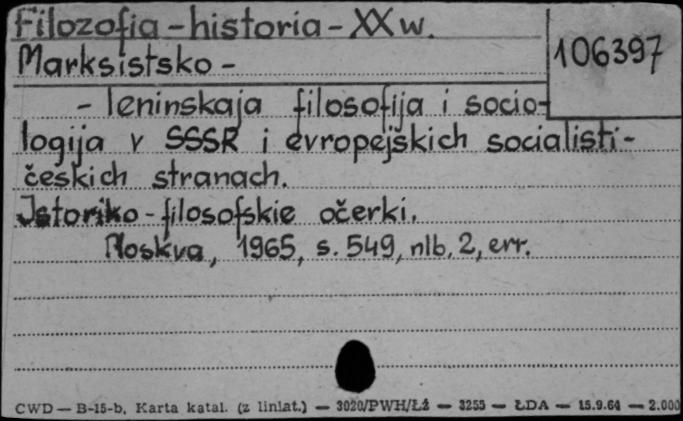 Filozofia - historia - XX w.
106397
Marksistsko -
- leninskaja filosofija i socio-
logija v SSSR i evropejskich socialisti-
českich stranach.
Istoriko - filosofskie očerki.
Moskva, 1965, s. 549, nlb. 2, err.
CWD — B-15-b, Karta katal. (z liniat.) — 3020/PWH/Łź — 3255 — ŁDA — 15.9.64 — 2.000